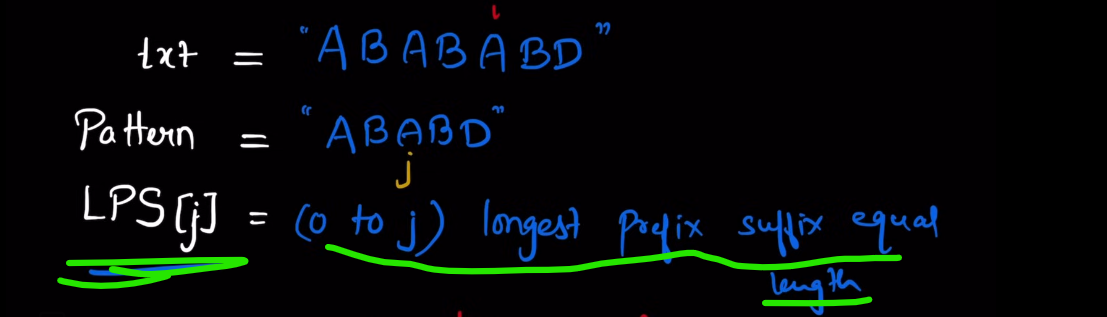 i
txt = "ABABABD"
Pattern = "ABABD"
j
LPS[j] = (0 to j) longest prefix suffix equal
length